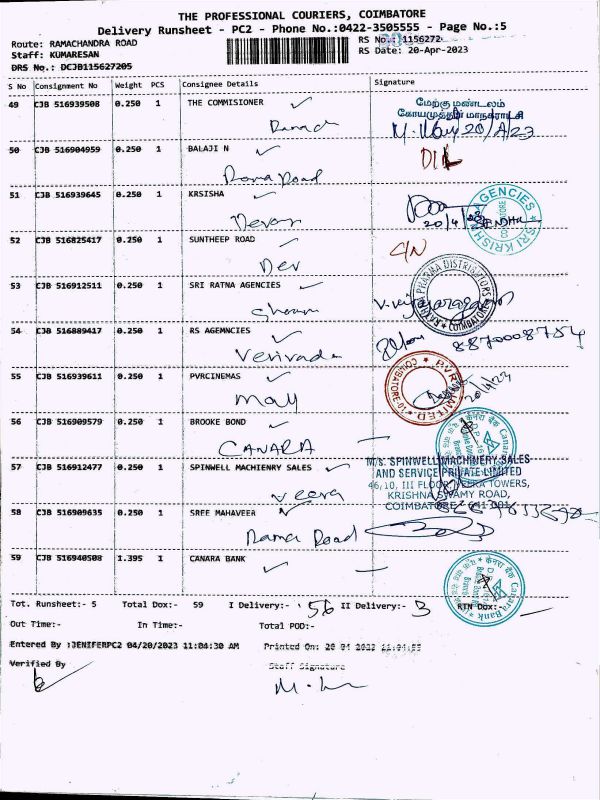 THE PROFESSIONAL COURIERS, COIMBATORE
Delivery Runsheet - PC2 - Phone No.:0422-3505555 - Page No.:5
Route: RAMACHANDRA ROAD
RS No.: 1156272
Staff: KUMARESAN
RS Date: 20-Apr-2023
DRS No.: DCJB115627205
S No Consignment No Weight PCS Consignee Details Signature
49 CJB 516939508 0.250 1 THE COMMISIONER
மேற்கு மண்டலம்
கோயமுத்தூர் மாநகராட்சி
20/4/23
50 CJB 516904959 0.250 1 BALAJI N
Rama Road
51 CJB 516939645 0.250 1 KRSISHA
Devan 20/4/23
SRI KRISHNA AGENCIES COIMBATORE
52 CJB 516825417 0.250 1 SUNTHEEP ROAD
Dev C/N
53 CJB 516912511 0.250 1 SRI RATNA AGENCIES
PHARMA DISTRIBUTORS COIMBATORE
54 CJB 516889417 0.250 1 RS AGEMNCIES
8870008754
55 CJB 516939611 0.250 1 PVRCINEMAS
May 20/4/23
PVR LIMITED COIMBATORE
56 CJB 516909579 0.250 1 BROOKE BOND
CANARA
Canara Bank
57 CJB 516912477 0.250 1 SPINWELL MACHIENRY SALES
Veera
M/s. SPINWELL MACHINERY SALES
AND SERVICE PRIVATE LIMITED
46,10, III FLOOR, VEERA TOWERS,
KRISHNA SWAMY ROAD,
COIMBATORE - 641 001
58 CJB 516909635 0.250 1 SREE MAHAVEER
Rama Road
59 CJB 516940508 1.395 1 CANARA BANK
केनरा बैंक Canara Bank
Tot. Runsheet:- 5 Total Dox:- 59 I Delivery:- 56 II Delivery:- 3 RTN Dox:-
Out Time:- In Time:- Total POD:-
Entered By :JENIFERPC2 04/20/2023 11:04:30 AM Printed On: 20 04 2023
Verified By Staff Signature